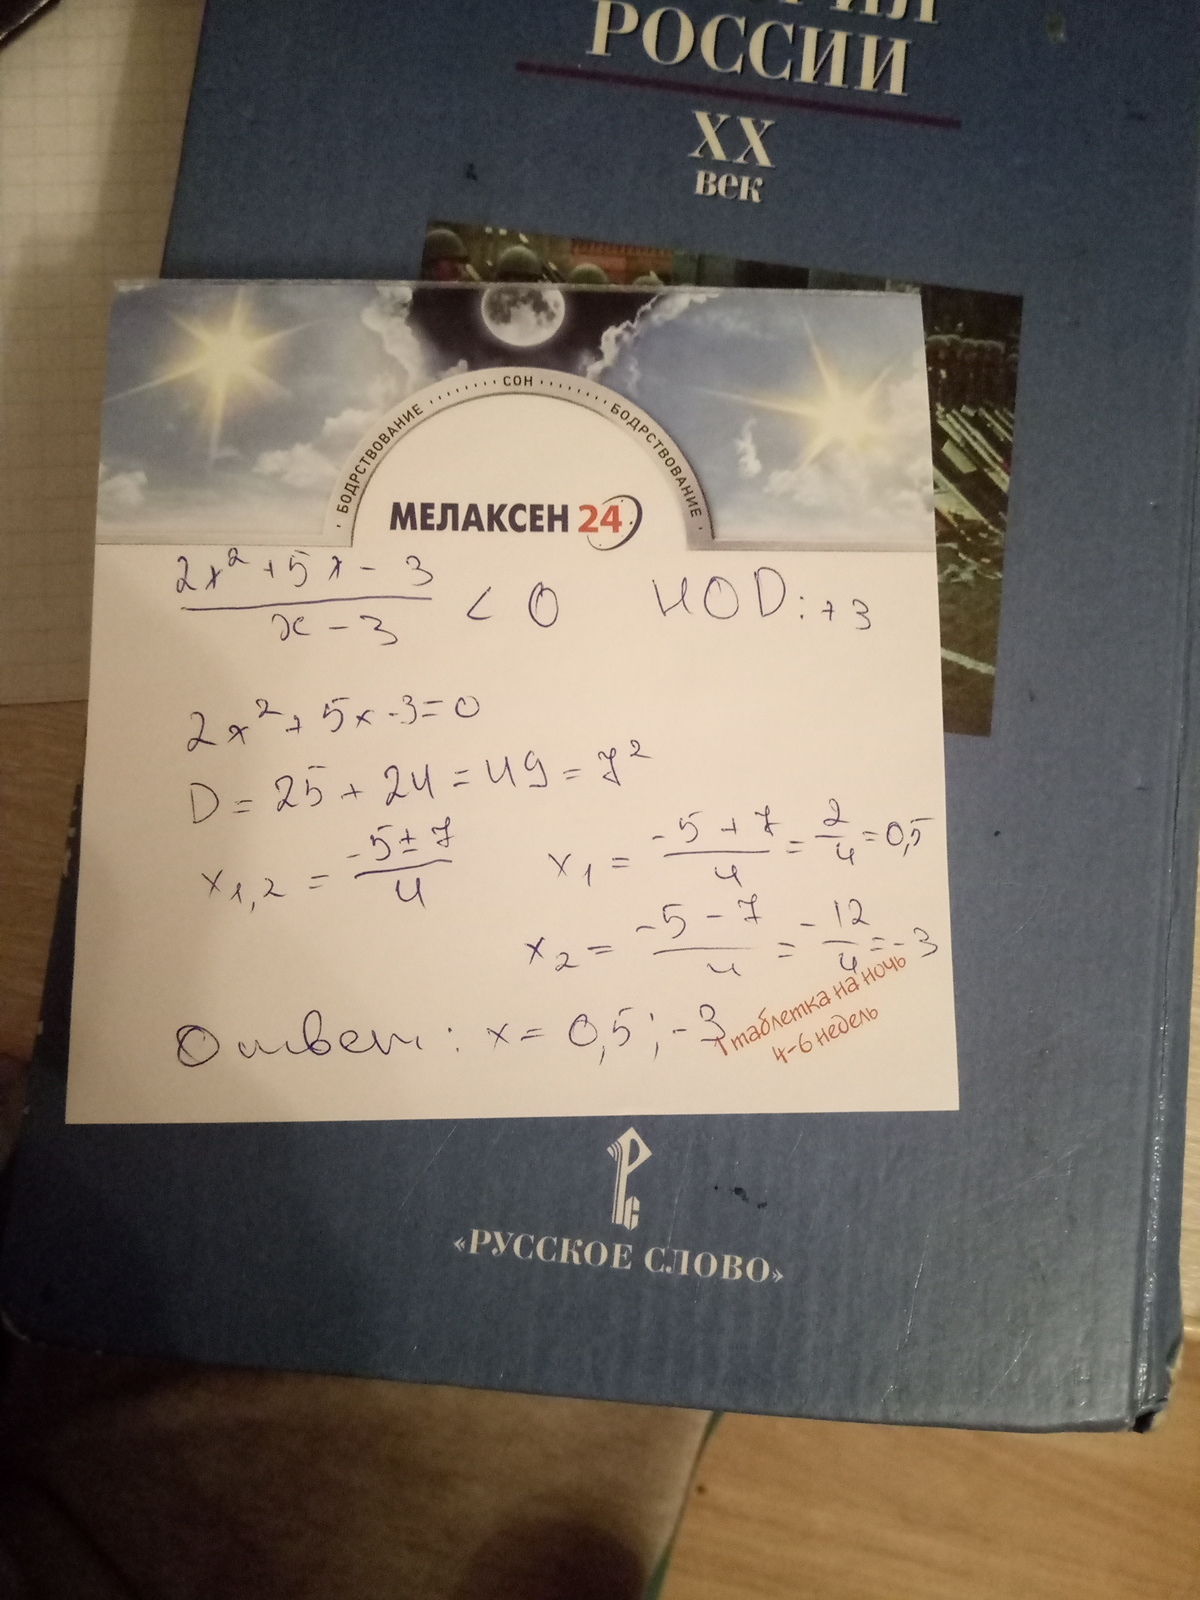 РОССИИ
XX
век
· БОДРСТВОВАНИЕ ········ СОН ········ БОДРСТВОВАНИЕ ·
МЕЛАКСЕН 24
(2x² + 5x - 3)/(x - 3) < 0 НОD: + 3
2x² + 5x - 3 = 0
D = 25 + 24 = 49 = 7²
x1,2 = (-5 ± 7)/4 x1 = (-5 + 7)/4 = 2/4 = 0,5
x2 = (-5 - 7)/4 = -12/4 = -3
Ответ: x = 0,5; -3
1 таблетка на ночь
4-6 недель
«РУССКОЕ СЛОВО»